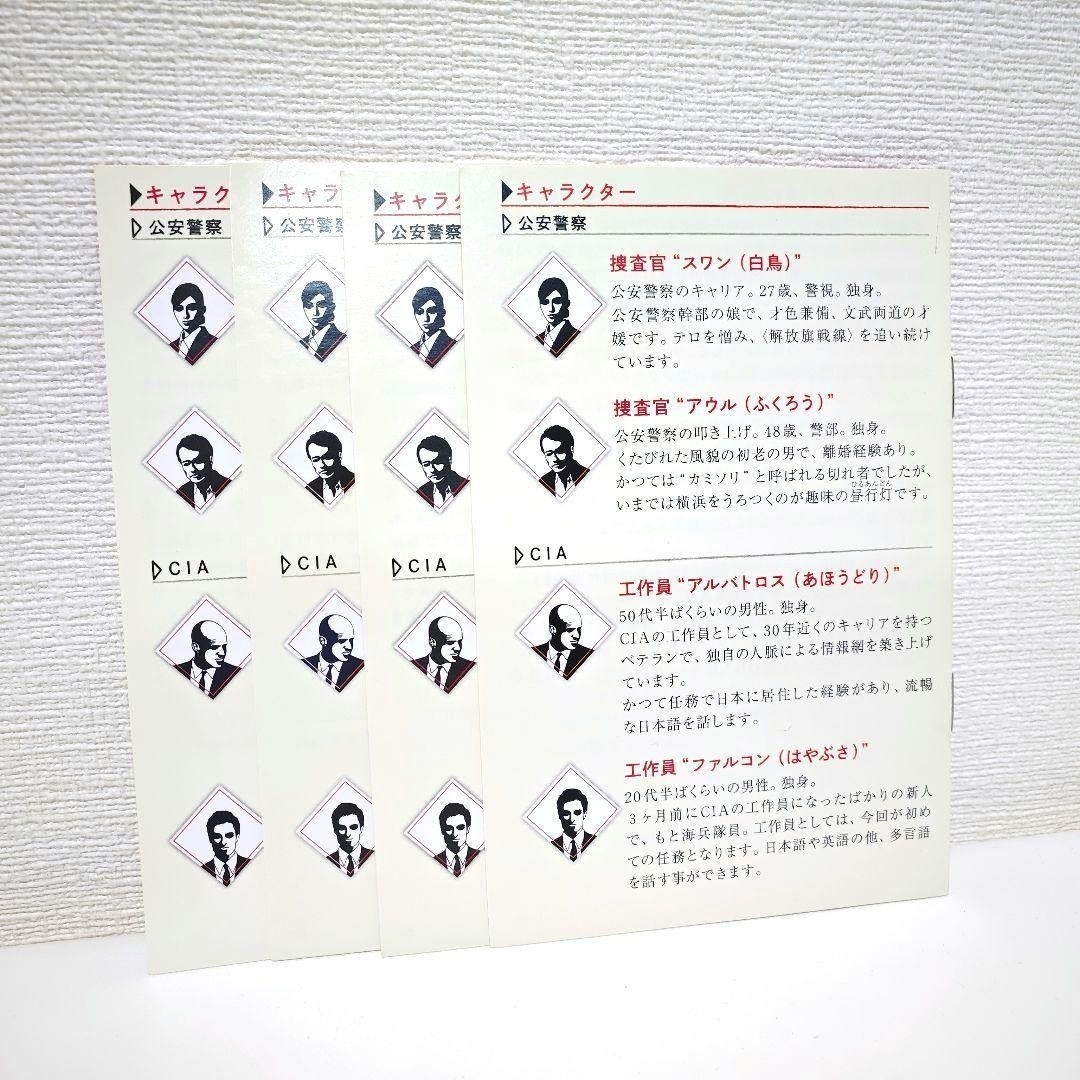 ▶キャラク
▷公安警察
▷CIA
▶キャラ
▷公安警察
▷CIA
▶キャラク
▷公安警察
▷CIA
▶キャラクター
▷公安警察
捜査官“スワン（白鳥）”
公安警察のキャリア。27歳、警視。独身。
公安警察幹部の娘で、才色兼備、文武両道の才
媛です。テロを憎み、〈解放旗戦線〉を追い続け
ています。
捜査官“アウル（ふくろう）”
公安警察の叩き上げ。48歳、警部。独身。
くたびれた風貌の初老の男で、離婚経験あり。
かつては“カミソリ”と呼ばれる切れ者でしたが、
ひるあんどん
いまでは横浜をうろつくのが趣味の昼行灯です。
▷CIA
工作員“アルバトロス（あほうどり）”
50代半ばくらいの男性。独身。
CIAの工作員として、30年近くのキャリアを持つ
ベテランで、独自の人脈による情報網を築き上げ
ています。
かつて任務で日本に居住した経験があり、流暢
な日本語を話します。
工作員“ファルコン（はやぶさ）”
20代半ばくらいの男性。独身。
3ヶ月前にCIAの工作員になったばかりの新人
で、もと海兵隊員。工作員としては、今回が初め
ての任務となります。日本語や英語の他、多言語
を話す事ができます。